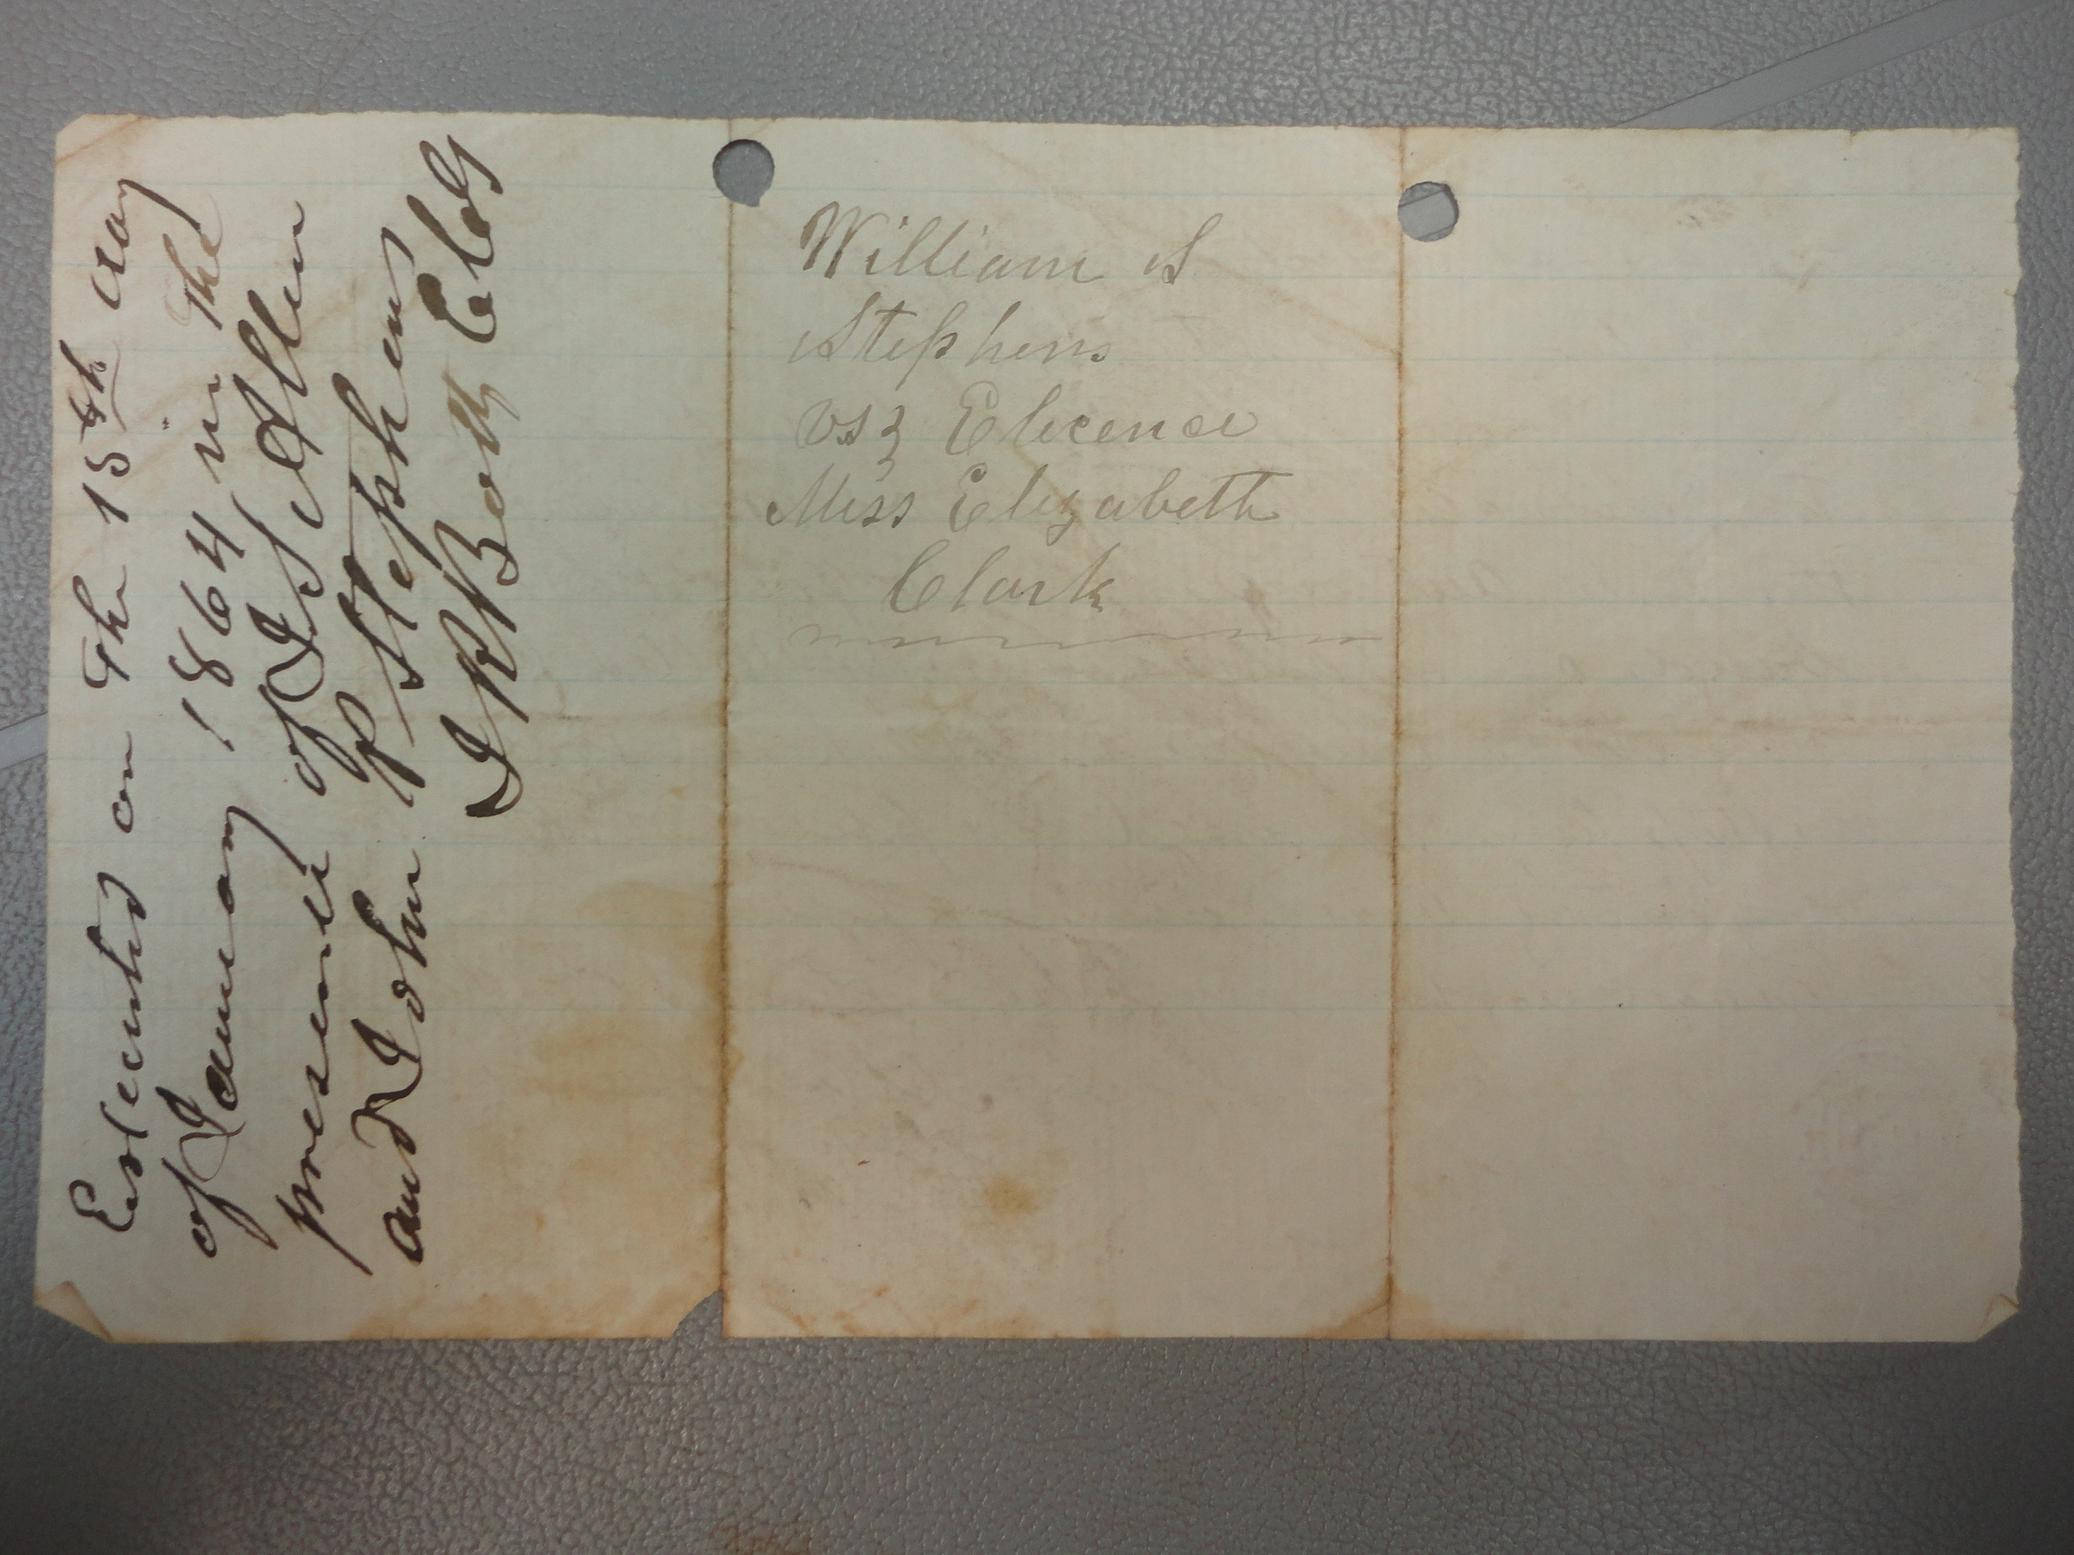 Exlecuted on the 15th day
of January 1864 in the
presence of J S Allen
and John R Stephens
J R Botty Eld
William S
Stephens
vs } Elicence
Miss Elizabeth
Clark